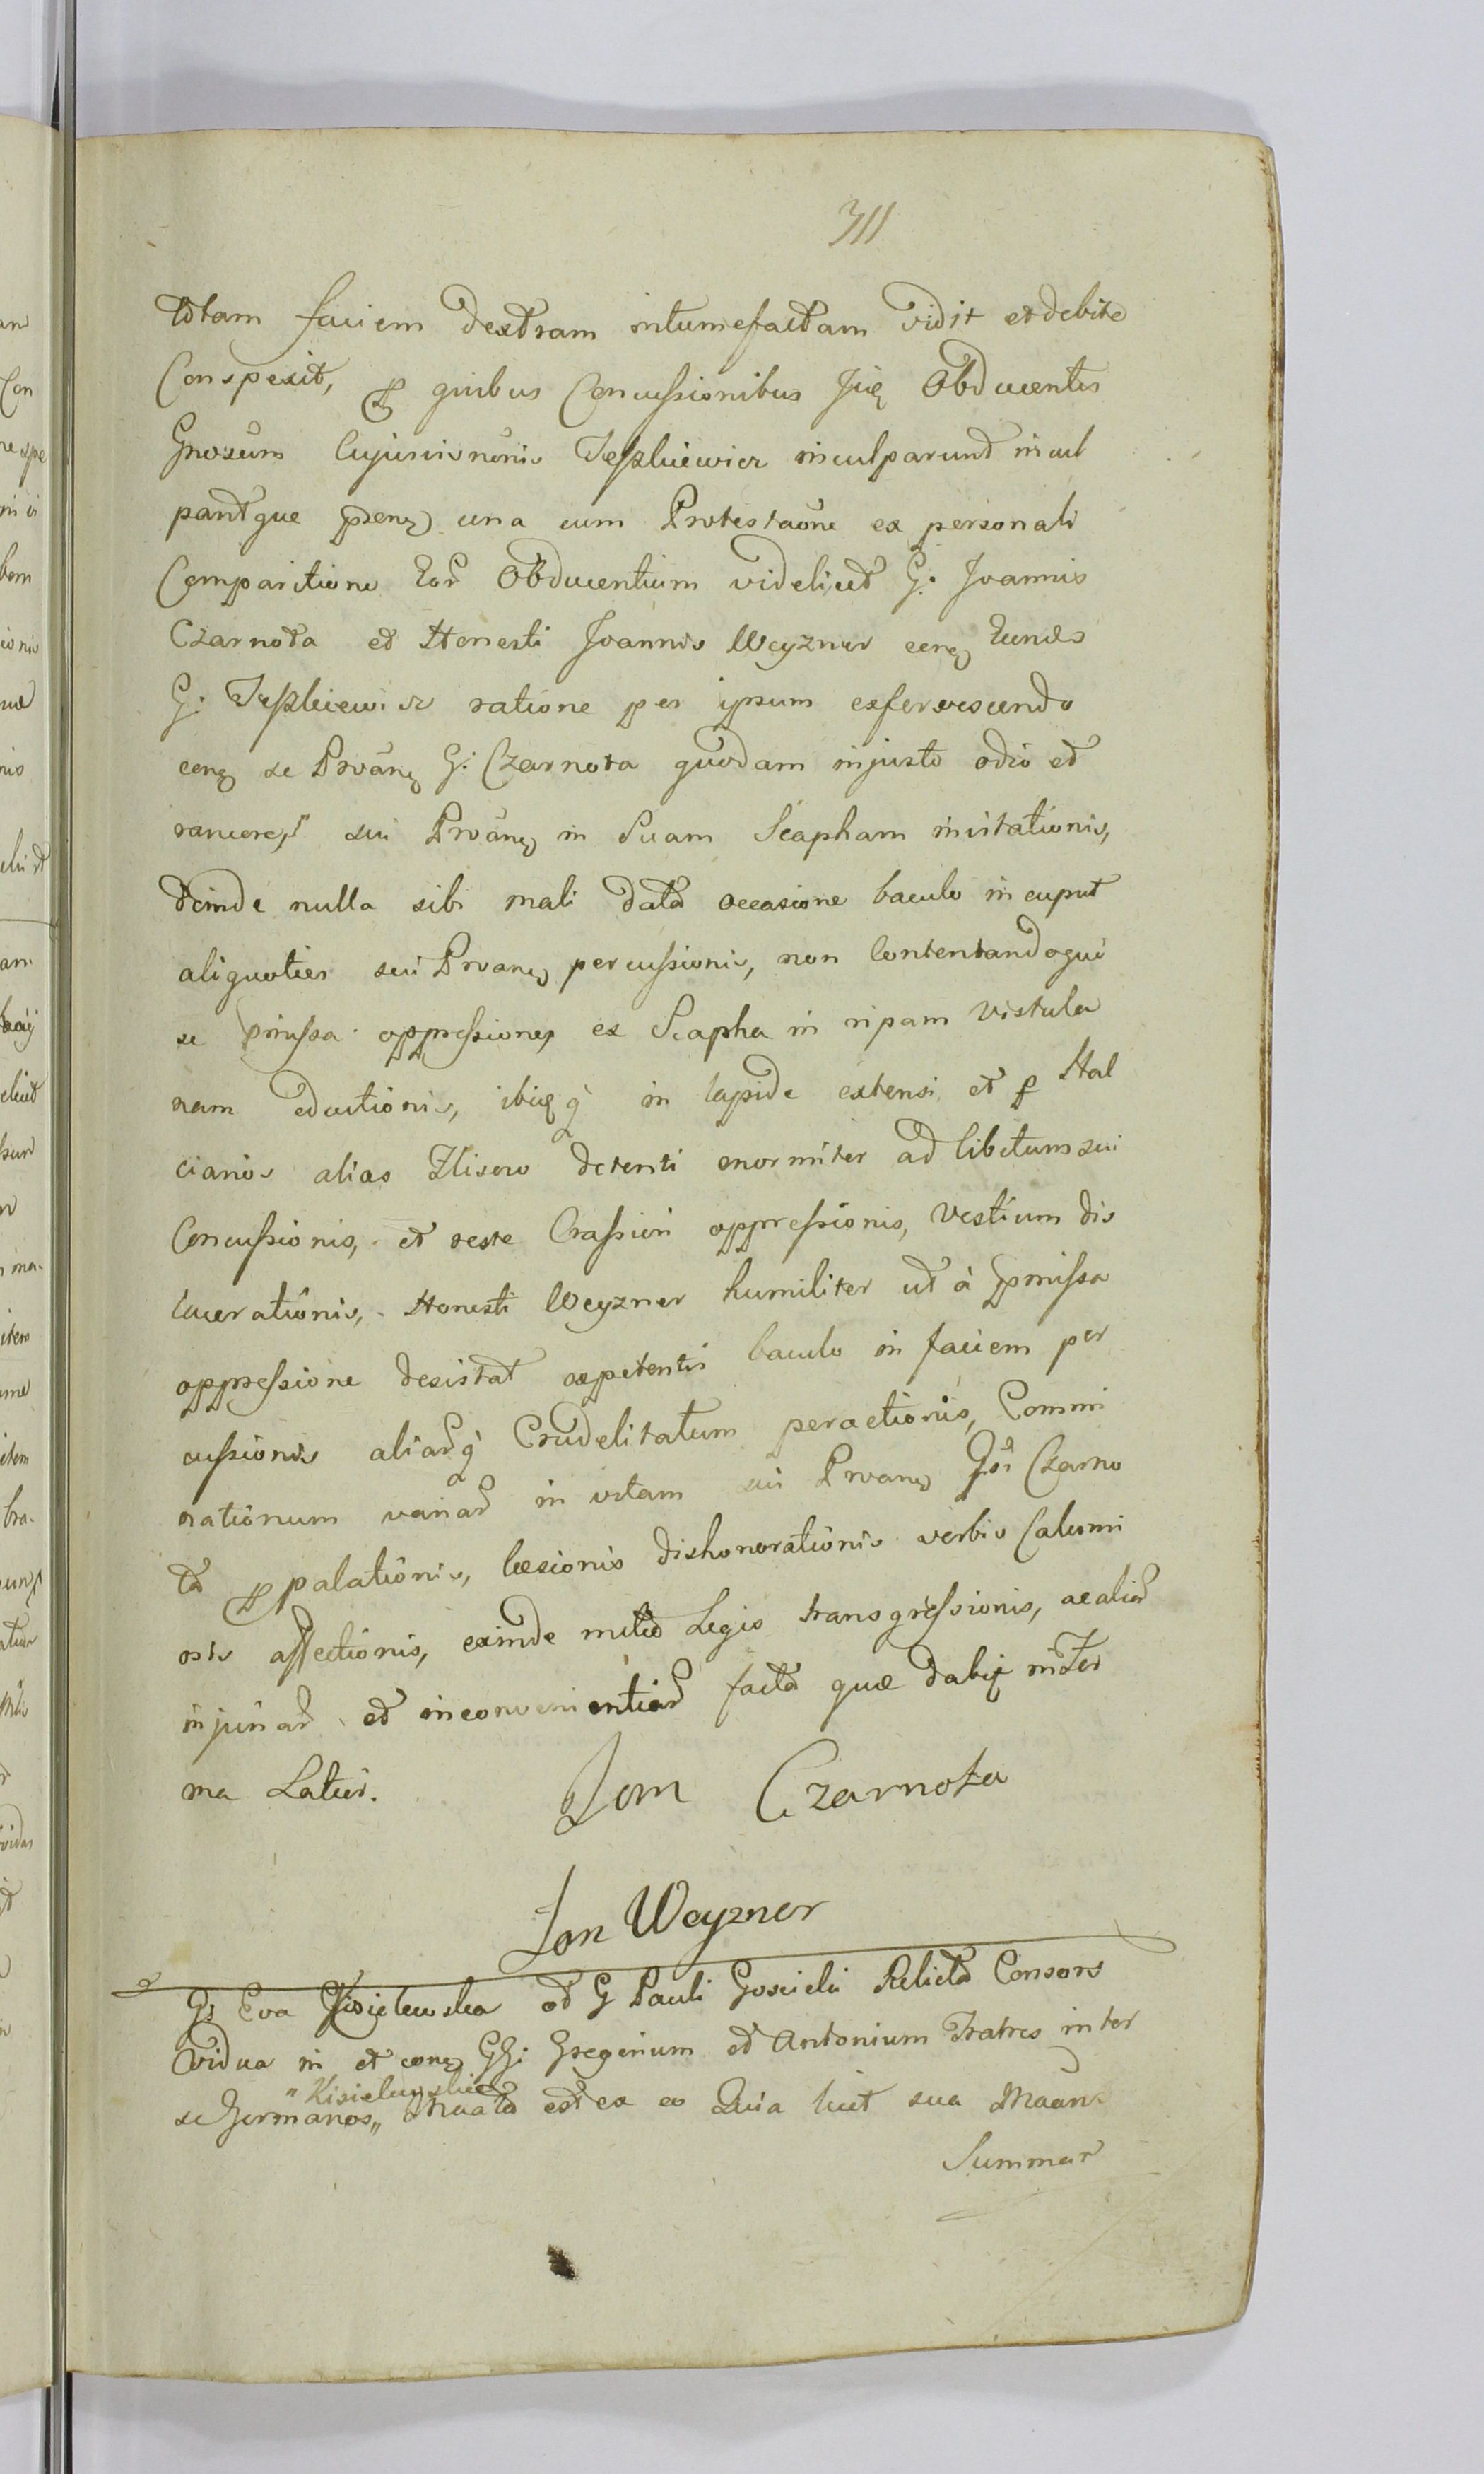 311
totam faciem dextram intumefactam vidit et debite
Conspexit, p quibus Concussionibus Suę Obducentes
Gnosum Cujusvisnoīnis Teszkiewicz inculparunt incul
pantque pñenę una cum Protestaōne ex personali
Comparitione Eor Obducentium videlicet G: Joannis
Czarnota et Honesti Joannis Weyzner conę Eund
G: Teszkiewicz ratione per ipsum exfervescendo
conę se Provanę G: Czarnota quodam injusto odio et
rancore, sui Provanę in Suam Scapham invitationis,
deinde nulla sibi mali data occasione baculo in caput
aliquoties sui Provanę percussionis, non Contentandoque
se pmissa oppressione, ex Scapha in ripam Vistula
nam eductionis, ibiq q in lapide extensi et p Hal
cianos alias Flisow detenti enormiter ad libitum sui
Concussionis, et reste Crassiori oppressionis, Vestium dis
lacerationis, Honesti Weyzner humiliter ut à pmissa
oppressione desistat expetentis baculo in faciem per
cussionis aliarq Crudelitatum peractionis, Commi
nationum variar in vitam sui Provanę Gsi Czarno
ta ppalationis, læsionis dishonorationis verbis Calumni
osis affectionis, exinde Legis transgressionis, ac aliar
injuriar et inconvenientiar facta quæ dabit in Ter
mᵒ Latius.
Jan Czarnota
Jan Weyzner
Gs Eva Kisielewska od G Pauli Goscicki Relicta Consors
Vidua in et conę GG: Gregorium et Antonium Fratres inter
se Germanos „ Kisielewskie „ est ex eo Quia licet sua
Summar